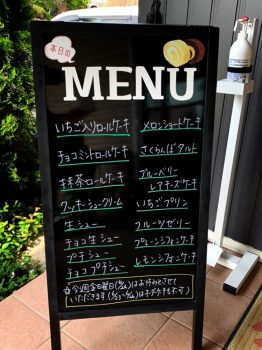 本日の
MENU
いちご入りロールケーキ
チョコミントロールケーキ
抹茶ロールケーキ
クッキーシュークリーム
生シュー
チョコ生シュー
プチシュー
チョコプチシュー
メロンショートケーキ
さくらんぼタルト
ブルーベリー
レアチーズケーキ
いちごプリン
フルーツゼリー
プレーンシフォンケーキ
レモンシフォンケーキ
☆今週金曜日はお休みとさせて
いただきます